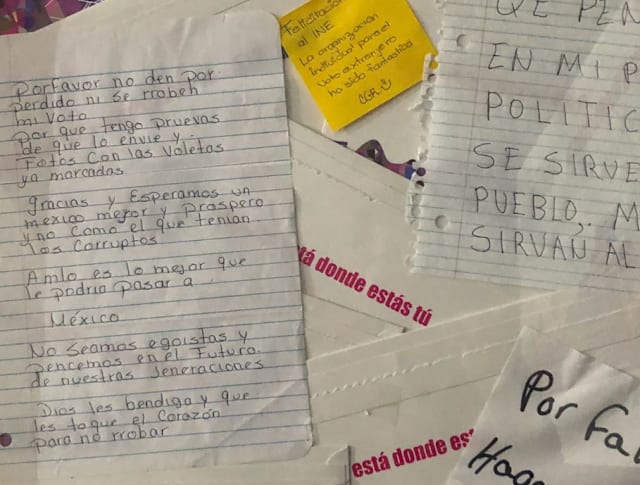 Porfavor no den por
perdido ni se rroben
mi Voto
Por que tengo pruevas
de que lo envie y
Fotos Con las Voletas
ya marcadas
gracias y Esperamos un
mexico mejor y Prospero
y no Como el que tenian
los Corruptos
Amlo es lo mejor que
le podria pasar a
México
No seamos egoistas y
pencemos en el Futuro
de nuestras Jeneraciones
Dios les bendiga y que
les toque el Corazón
para no rrobar
Felicitación
al INE
La organización
individual para el
Voto extranjero
ha sido fantastica
CGR
QE PEN
EN MI P
POLITIC
SE SIRVE
PUEBLO, M
SIRVAN AL
tá donde estás tú
está donde es
Por Fa
Hag